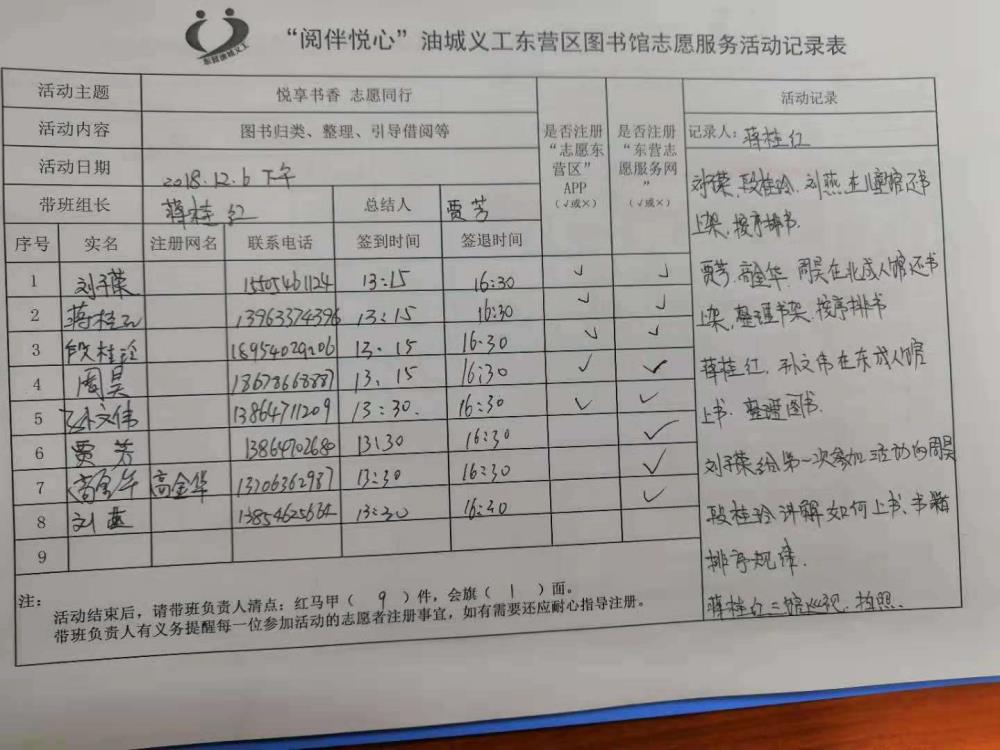 东营油城义工
“阅伴悦心”油城义工东营区图书馆志愿服务活动记录表
活动主题 悦享书香 志愿同行
活动内容 图书归类、整理、引导借阅等
活动日期 2018.12.6 下午
带班组长 蒋桂红 总结人 贾芳
是否注册“志愿东营区”APP（√或×）
是否注册“东营志愿服务网”（√或×）
序号 实名 注册网名 联系电话 签到时间 签退时间
1 刘子荣 15505461124 13:15 16:30 √ √
2 蒋桂红 13963374396 13:15 16:30 √ √
3 段桂玲 18954029206 13:15 16:30 √ √
4 周昊 18678668887 13:15 16:30 √ √
5 孙文伟 13864711209 13:30. 16:30 √ √
6 贾芳 13864702680 13:30 16:30 √
7 高金华 高金华 13206362987 13:30 16:30 √
8 刘燕 13854625664 13:30 16:30 √
9
注：
活动结束后，请带班负责人清点：红马甲（ 9 ）件，会旗（ 1 ）面。
带班负责人有义务提醒每一位参加活动的志愿者注册事宜，如有需要还应耐心指导注册。
活动记录
记录人：蒋桂红
刘子荣、段桂玲、刘燕在儿童馆还书
上架，按序排书.
贾芳、高金华、周昊在北成人馆还书
上架，整理书架、按序排书
蒋桂红、孙文伟在东成人馆
上书、整理图书.
刘子荣给第一次参加活动的周昊
段桂玲讲解如何上书、书籍
排序规律.
蒋桂红三馆巡视、拍照.